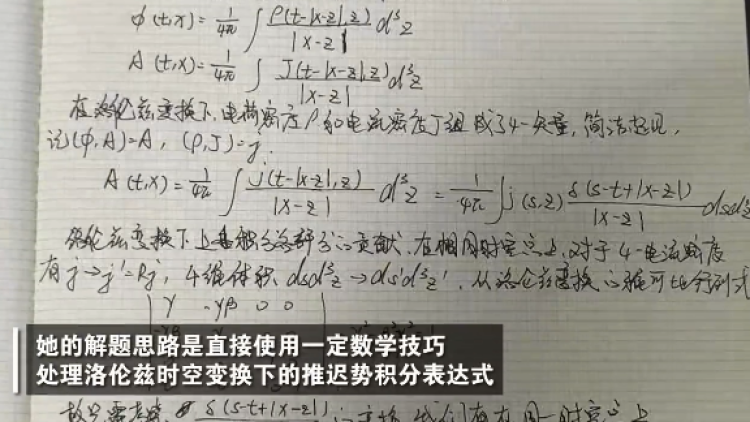 φ(t,x)= 1/4π ∫ ρ(t-|x-z|,z)/|x-z| d³z
A(t,x)= 1/4π ∫ J(t-|x-z|,z)/|x-z| d³z
在洛伦兹变换下,电荷密度ρ和电流密度J组成了4-矢量,简洁起见,
记(φ,A)=A,(ρ,J)=j.
A(t,x)= 1/4π ∫ j(t-|x-z|,z)/|x-z| d³z = 1/4π ∫ j(s,z) δ(s-t+|x-z|)/|x-z| dsd³
洛伦兹变换下上面积分各部分的贡献.在相同时空点上,对于4-电流密度
有j→j'=Rj, 4维体积 dsd³z→ds'd³z'. 从洛伦兹变换的雅可比行列式
γ -γβ 0 0
她的解题思路是直接使用一定数学技巧
处理洛伦兹时空变换下的推迟势积分表达式
故只需考虑 δ(s-t+|x-z|) 的变换,我们有在同一时空点上